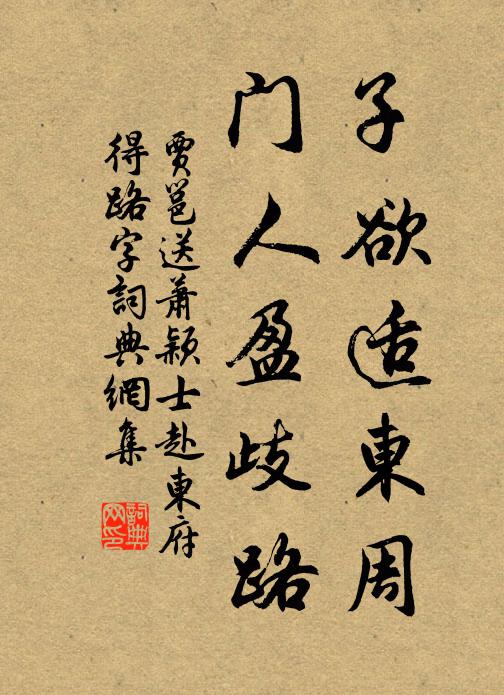 子欲适東周
门人盈歧路
賈邕送萧颖士赴東府
得路字詞典網集
詞典
网印